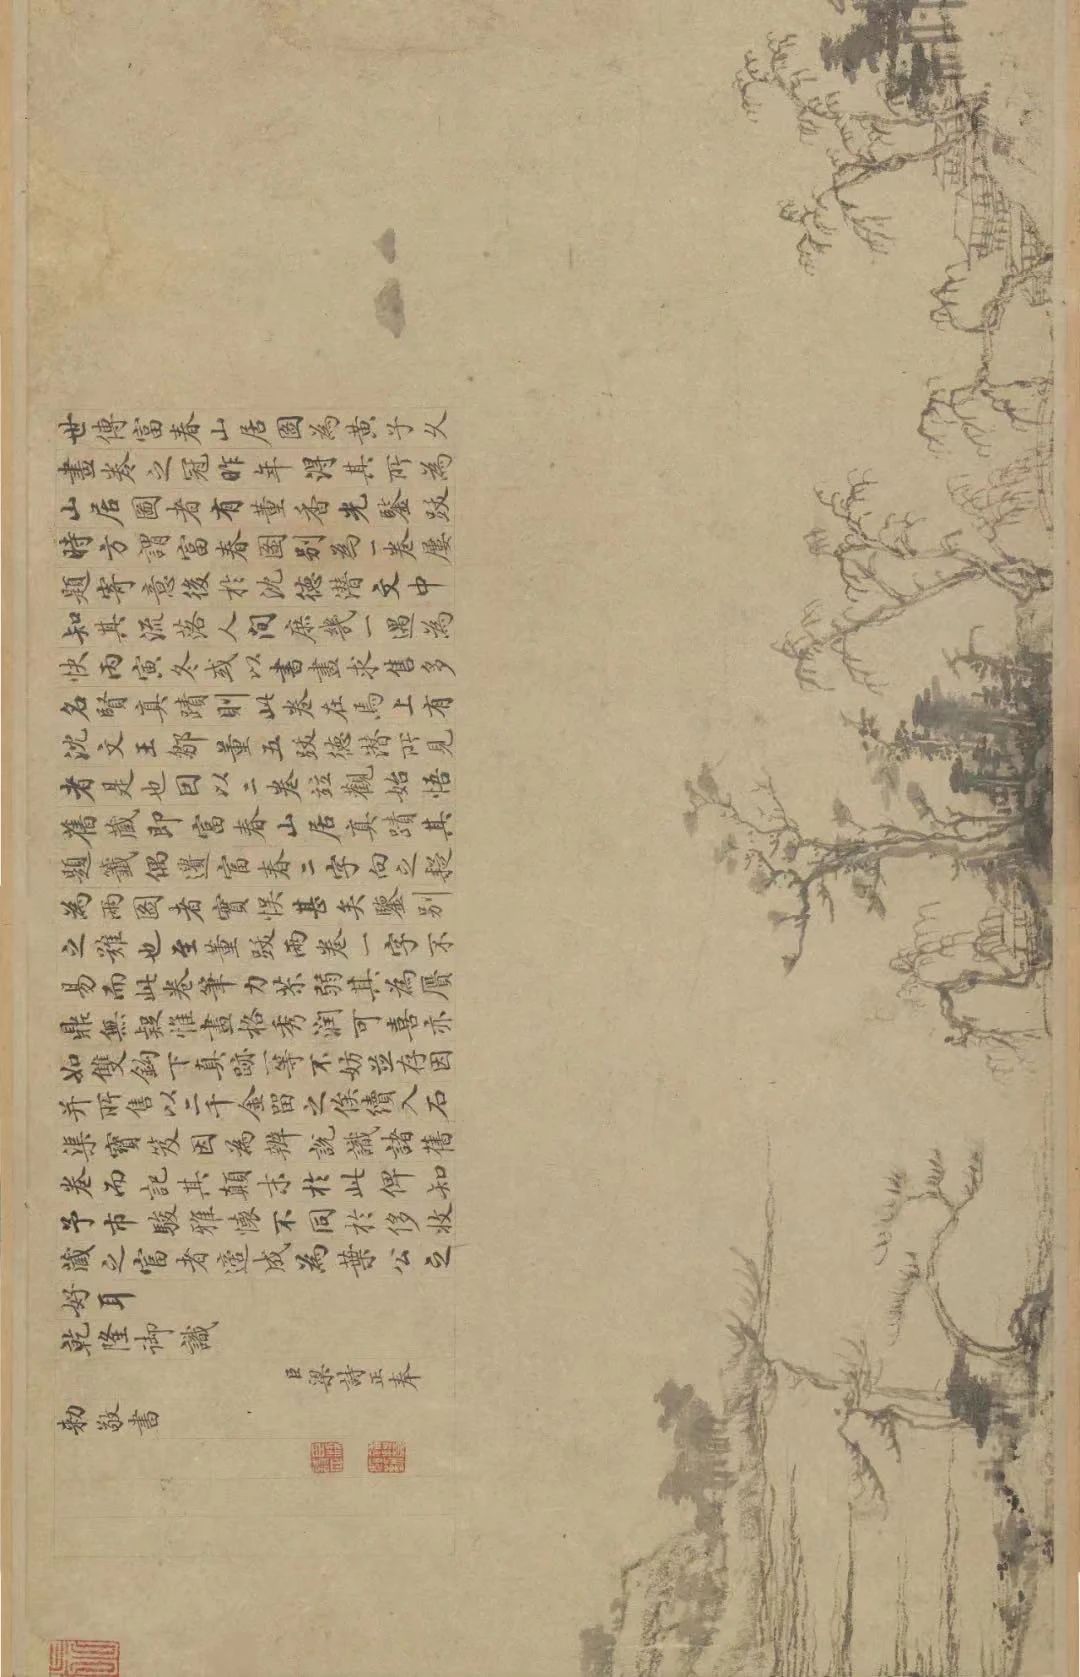 世傳富春山居圖為黃子久
畫卷之冠昨年得其所為
山居圖者有董香光鑒跋
時方謂富春圖別為一卷屢
題寄意後於沈德潛文中
知其流落人間庶幾一遇為
快丙寅冬或以書畫求售多
名賢真蹟則此卷在焉上有
沈文王鄒董五跋德潛所見
者是也因以二卷竝觀始悟
舊藏即富春山居真蹟其
題籤偶遺富春二字向之疑
為兩圖者實悞甚矣鑒別
之難也至董跋兩卷一字不
易而此卷筆力苶弱其為贋
鼎無疑惟畫格秀潤可喜亦
如雙鉤下真跡一等不妨並存因
并所售以二千金留之俟續入石
渠寶笈因為辨說識諸舊
卷而記其顛末於此俾知
予市駿雅懷不同於侈收
藏之富者適成為葉公之
好耳
乾隆御識
臣梁詩正奉
勅敬書